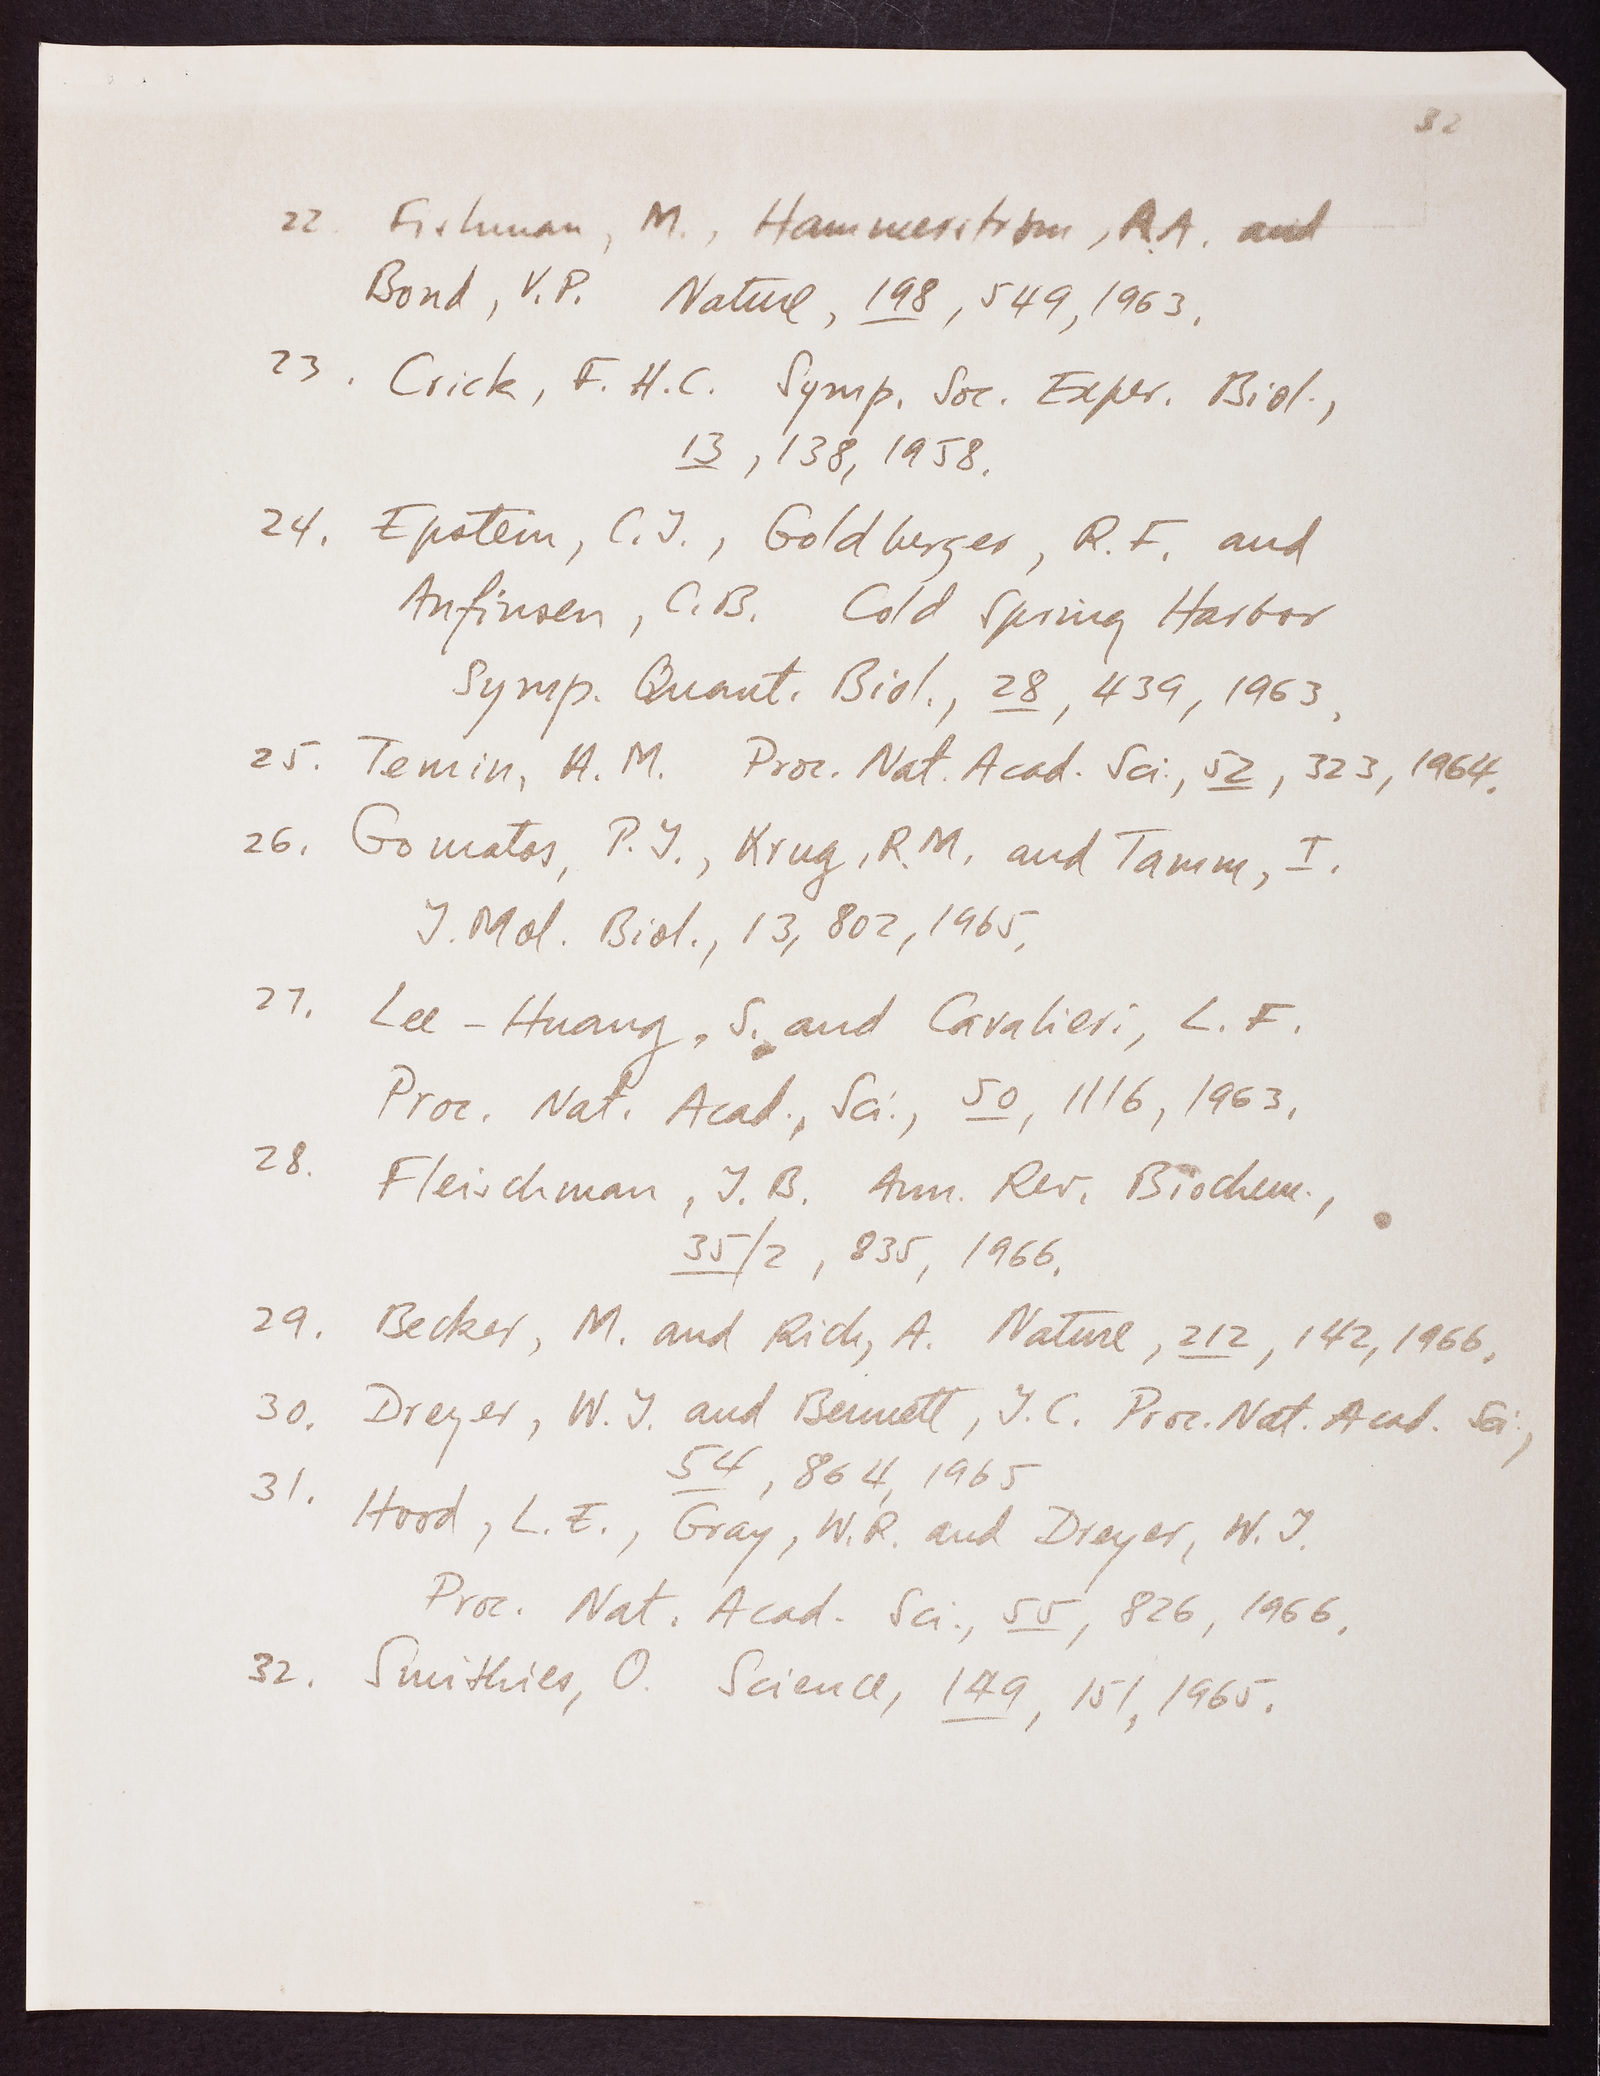 32
22. Fishman, M., Hammerström, R.A. and
Bond, V.P. Nature, 198, 549, 1963.
23. Crick, F.H.C. Symp. Soc. Exper. Biol.,
13, 138, 1958.
24. Epstein, C.J., Goldberger, R.F. and
Anfinsen, C.B. Cold Spring Harbor
Symp. Quant. Biol., 28, 439, 1963.
25. Temin, H.M. Proc. Nat. Acad. Sci., 52, 323, 1964.
26. Gomatos, P.J., Krug, R.M. and Tamm, I.
J. Mol. Biol., 13, 802, 1965.
27. Lee-Huang, S. and Cavalieri, L.F.
Proc. Nat. Acad., Sci., 50, 1116, 1963.
28. Fleischman, J.B. Ann. Rev. Biochem.,
35/2, 835, 1966.
29. Becker, M. and Rich, A. Nature, 212, 142, 1966.
30. Dreyer, W.J. and Bennett, J.C. Proc. Nat. Acad. Sci.,
54, 864, 1965
31. Hood, L.E., Gray, W.R. and Dreyer, W.J.
Proc. Nat. Acad. Sci., 55, 826, 1966.
32. Smithies, O. Science, 149, 151, 1965.